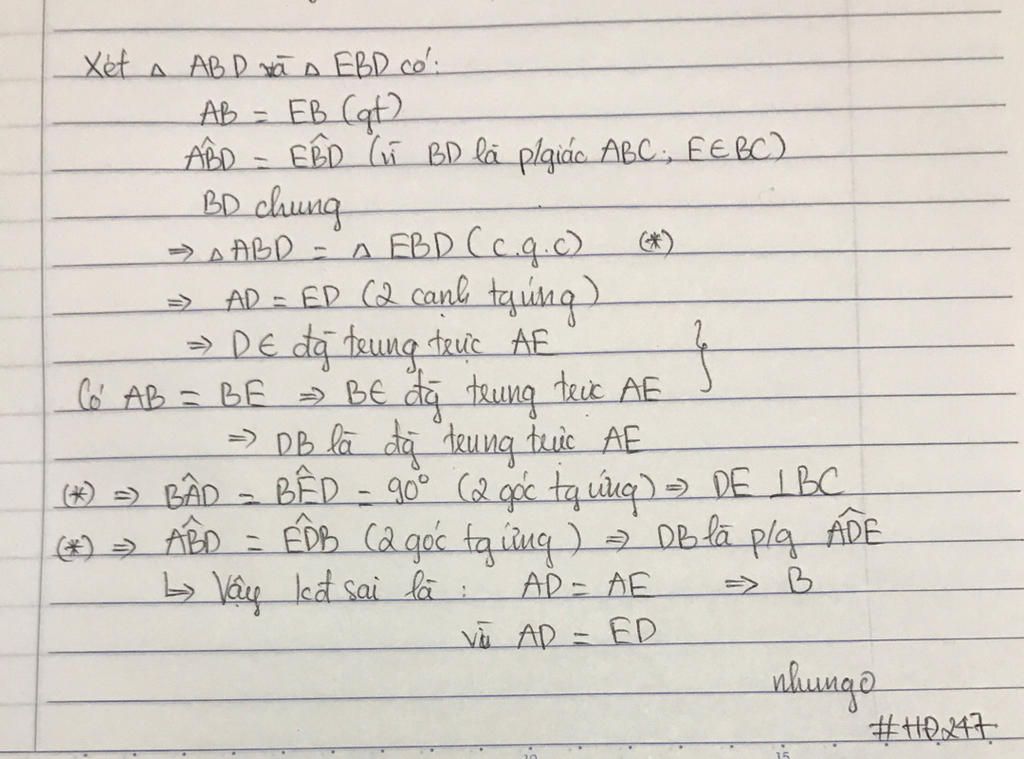 Xét △ ABD và △ EBD có:
AB = EB (gt)
AB̂D = EB̂D (vì BD là p/giác ABC; E∈BC)
BD chung
⇒ △ABD = △ EBD (c.g.c) (*)
⇒ AD = ED (2 cạnh tg ứng)
⇒ D∈ đg trung trực AE
Có AB = BE ⇒ B∈ đg trung trực AE
⇒ DB là đg trung trực AE
(*) ⇒ BÂD = BÊD = 90° (2 góc tg ứng) ⇒ DE ⊥BC
(*) ⇒ AB̂D = ED̂B (2 góc tg ứng) ⇒ DB là p/g AD̂E
↳ Vậy kđ sai là : AD = AE ⇒ B
vì AD = ED
nhungo
#HĐ247
10 15